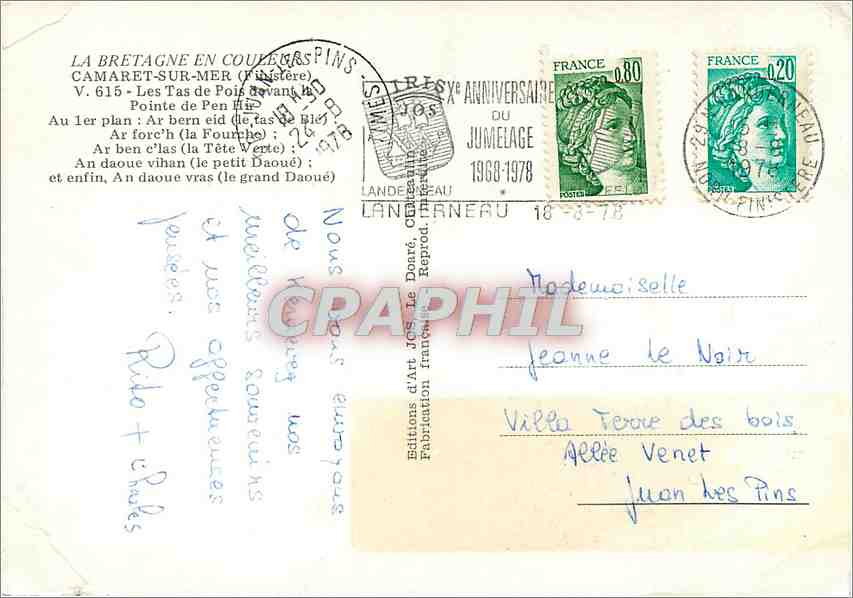 LA BRETAGNE EN COULEURS
CAMARET-SUR-MER (Finistère)
V. 615 - Les Tas de Pois devant la
Pointe de Pen Hir
Au 1er plan : Ar bern eid (le tas de Blé)
Ar forc'h (la Fourche) ;
Ar ben c'las (la Tête Verte) ;
An daoue vihan (le petit Daoué) ;
et enfin, An daoue vras (le grand Daoué)
JUAN-LES-PINS
24-8
1978
IRIS
JOS
Xe ANNIVERSAIRE
DU
JUMELAGE
1968-1978
LANDERNEAU
LANDERNEAU 18-8-78
FRANCE
0,80
POSTES
FRANCE
0,20
POSTES
29 LANDERNEAU
18-8
1978
NORD-FINISTERE
Editions d'Art JOS, Le Doaré, Châteaulin
Fabrication française - Reprod. interdite
Nous vous envoyons
de nos
meilleurs souvenirs
et nos affectueuses
pensées.
Rito + Charles
Mademoiselle
Jeanne Le Noir
Villa Terre des bois
Allée Venet
Juan Les Pins
CPAPHIL